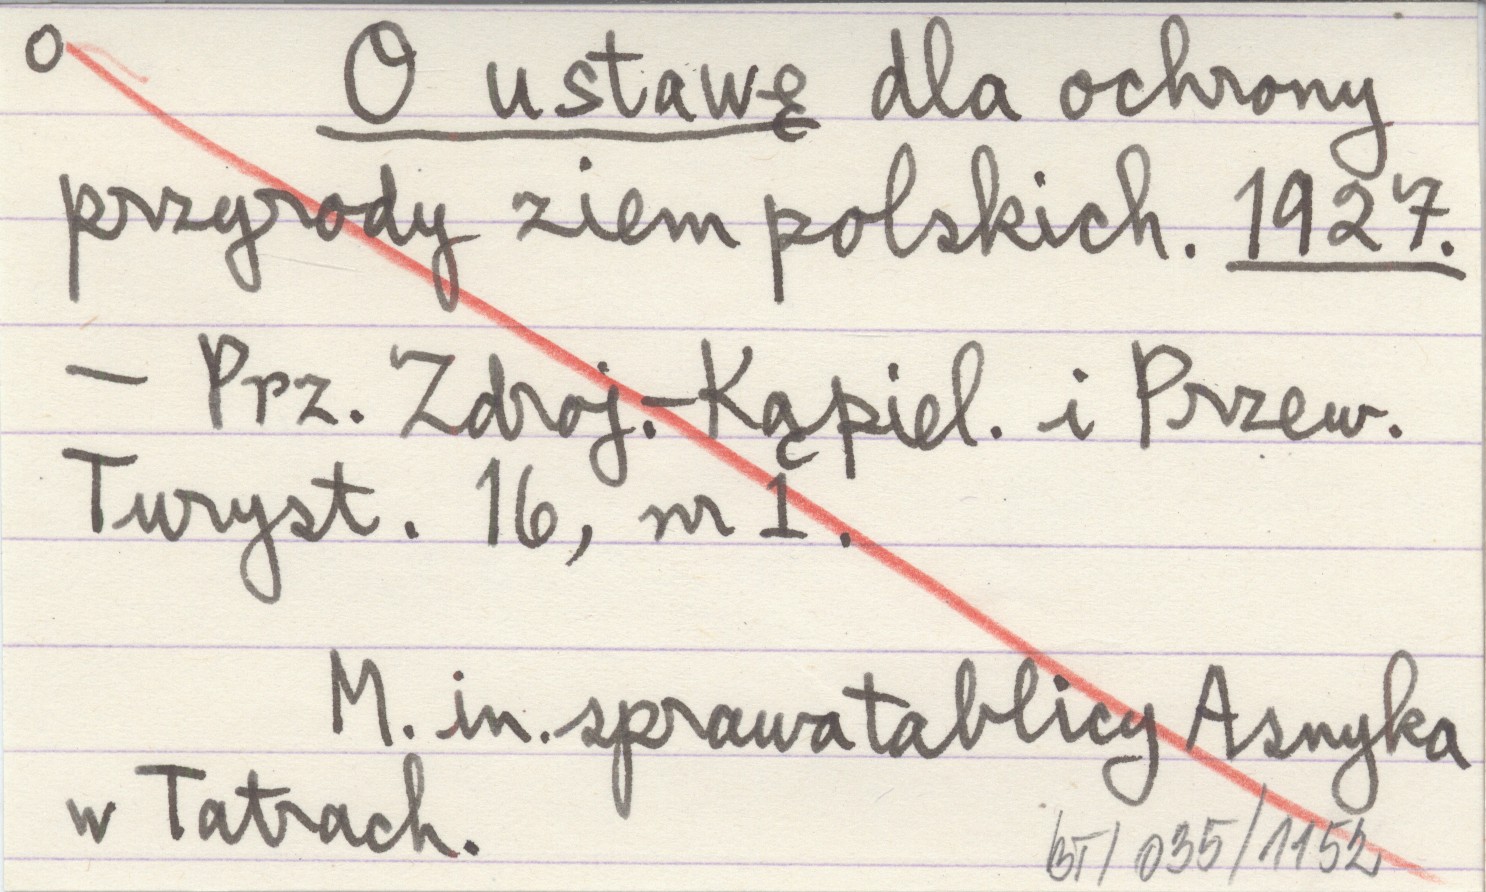 o O ustawę dla ochrony
przyrody ziem polskich. 1927.
— Prz. Zdroj.-Kąpiel. i Przew.
Turyst. 16, nr 1.
M. in. sprawa tablicy Asnyka
w Tatrach.
BT/035/1152